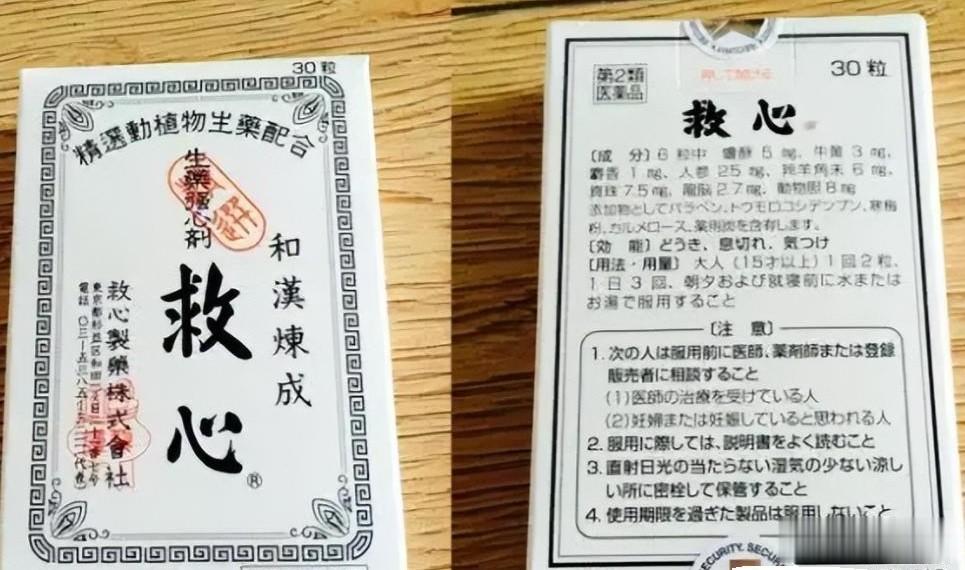 30粒
精選動植物生藥配合
生藥强心剤
和漢煉成
救心®
救心製藥株式會社
30粒
第2類
医薬品
救心
〔成 分〕6粒中 蟾酥 5mg、牛黄 3mg、
麝香 1mg、人参 25mg、羚羊角末 6mg、
真珠 7.5mg、龍脳 2.7mg、動物胆 8mg
添加物としてパラベン、トウモロコシデンプン、寒梅
粉、カルメロース、薬用炭を含有します。
〔効 能〕どうき、息切れ、気つけ
〔用法・用量〕大人（15才以上）1回2粒、
1日3回、朝夕および就寝前に水または
お湯で服用すること
〔注 意〕
1. 次の人は服用前に医師、薬剤師または登録
販売者に相談すること
(1)医師の治療を受けている人
(2)妊婦または妊娠していると思われる人
2. 服用に際しては、説明書をよく読むこと
3. 直射日光の当たらない湿気の少ない涼し
い所に密栓して保管すること
4. 使用期限を過ぎた製品は服用しないこと
SECURITY. SECUR